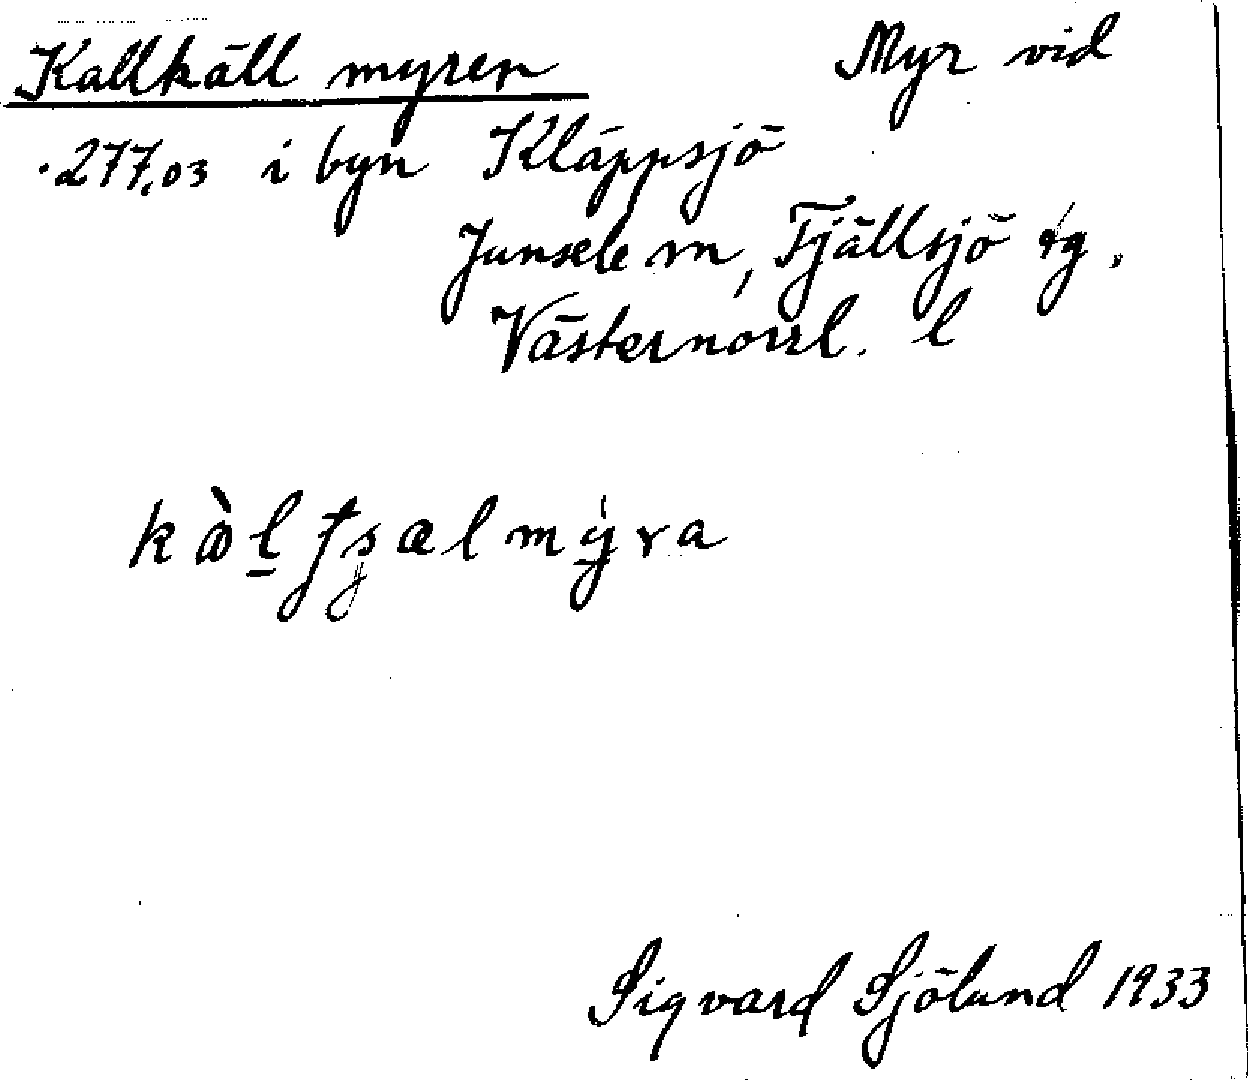 Kallkällmyren Myr vid
.277,03 i byn Kläppsjö
Junsele sn, Fjällsjö tg,
Västernorrl. l
Sigvard Sjölund 1933